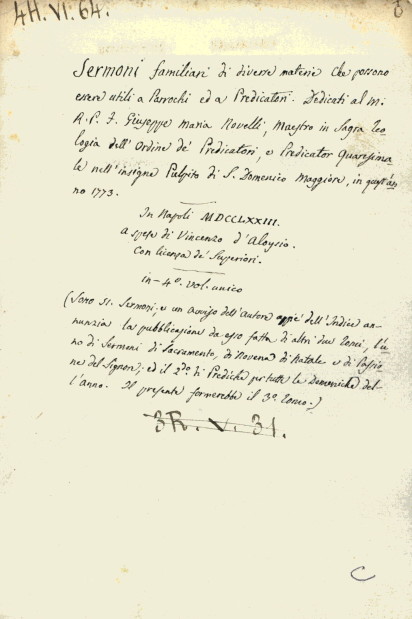 4H. VI. 64.
Sermoni familiari di diverse materie che possono
essere utili a Parrochi ed a Predicatori. Dedicati al M.
R. P. F. Giuseppe Maria Novelli, Maestro in Sagra Teo
logia dell'Ordine de' Predicatori, e Predicator Quaresima
le nell'insigne Pulpito di S. Domenico Maggiore, in quest'an
no 1773.
In Napoli MDCCLXXIII.
A spese di Vincenzo d'Aloysio.
Con licenza de' Superiori.
in-4º. vol. unico
(Sono 51. Sermoni, e un avviso dell'Autore appiè dell'Indice an-
nunzia la pubblicazione da esso fatta di altri due Tomi, l'u
no di Sermoni di Sacramento, di Novena di Natale e di Passio
ne del Signore, ed il 2do. di Prediche per tutte le Domeniche del-
l'anno. Il presente formerebbe il 3º. Tomo.)
3R. V. 31.
C